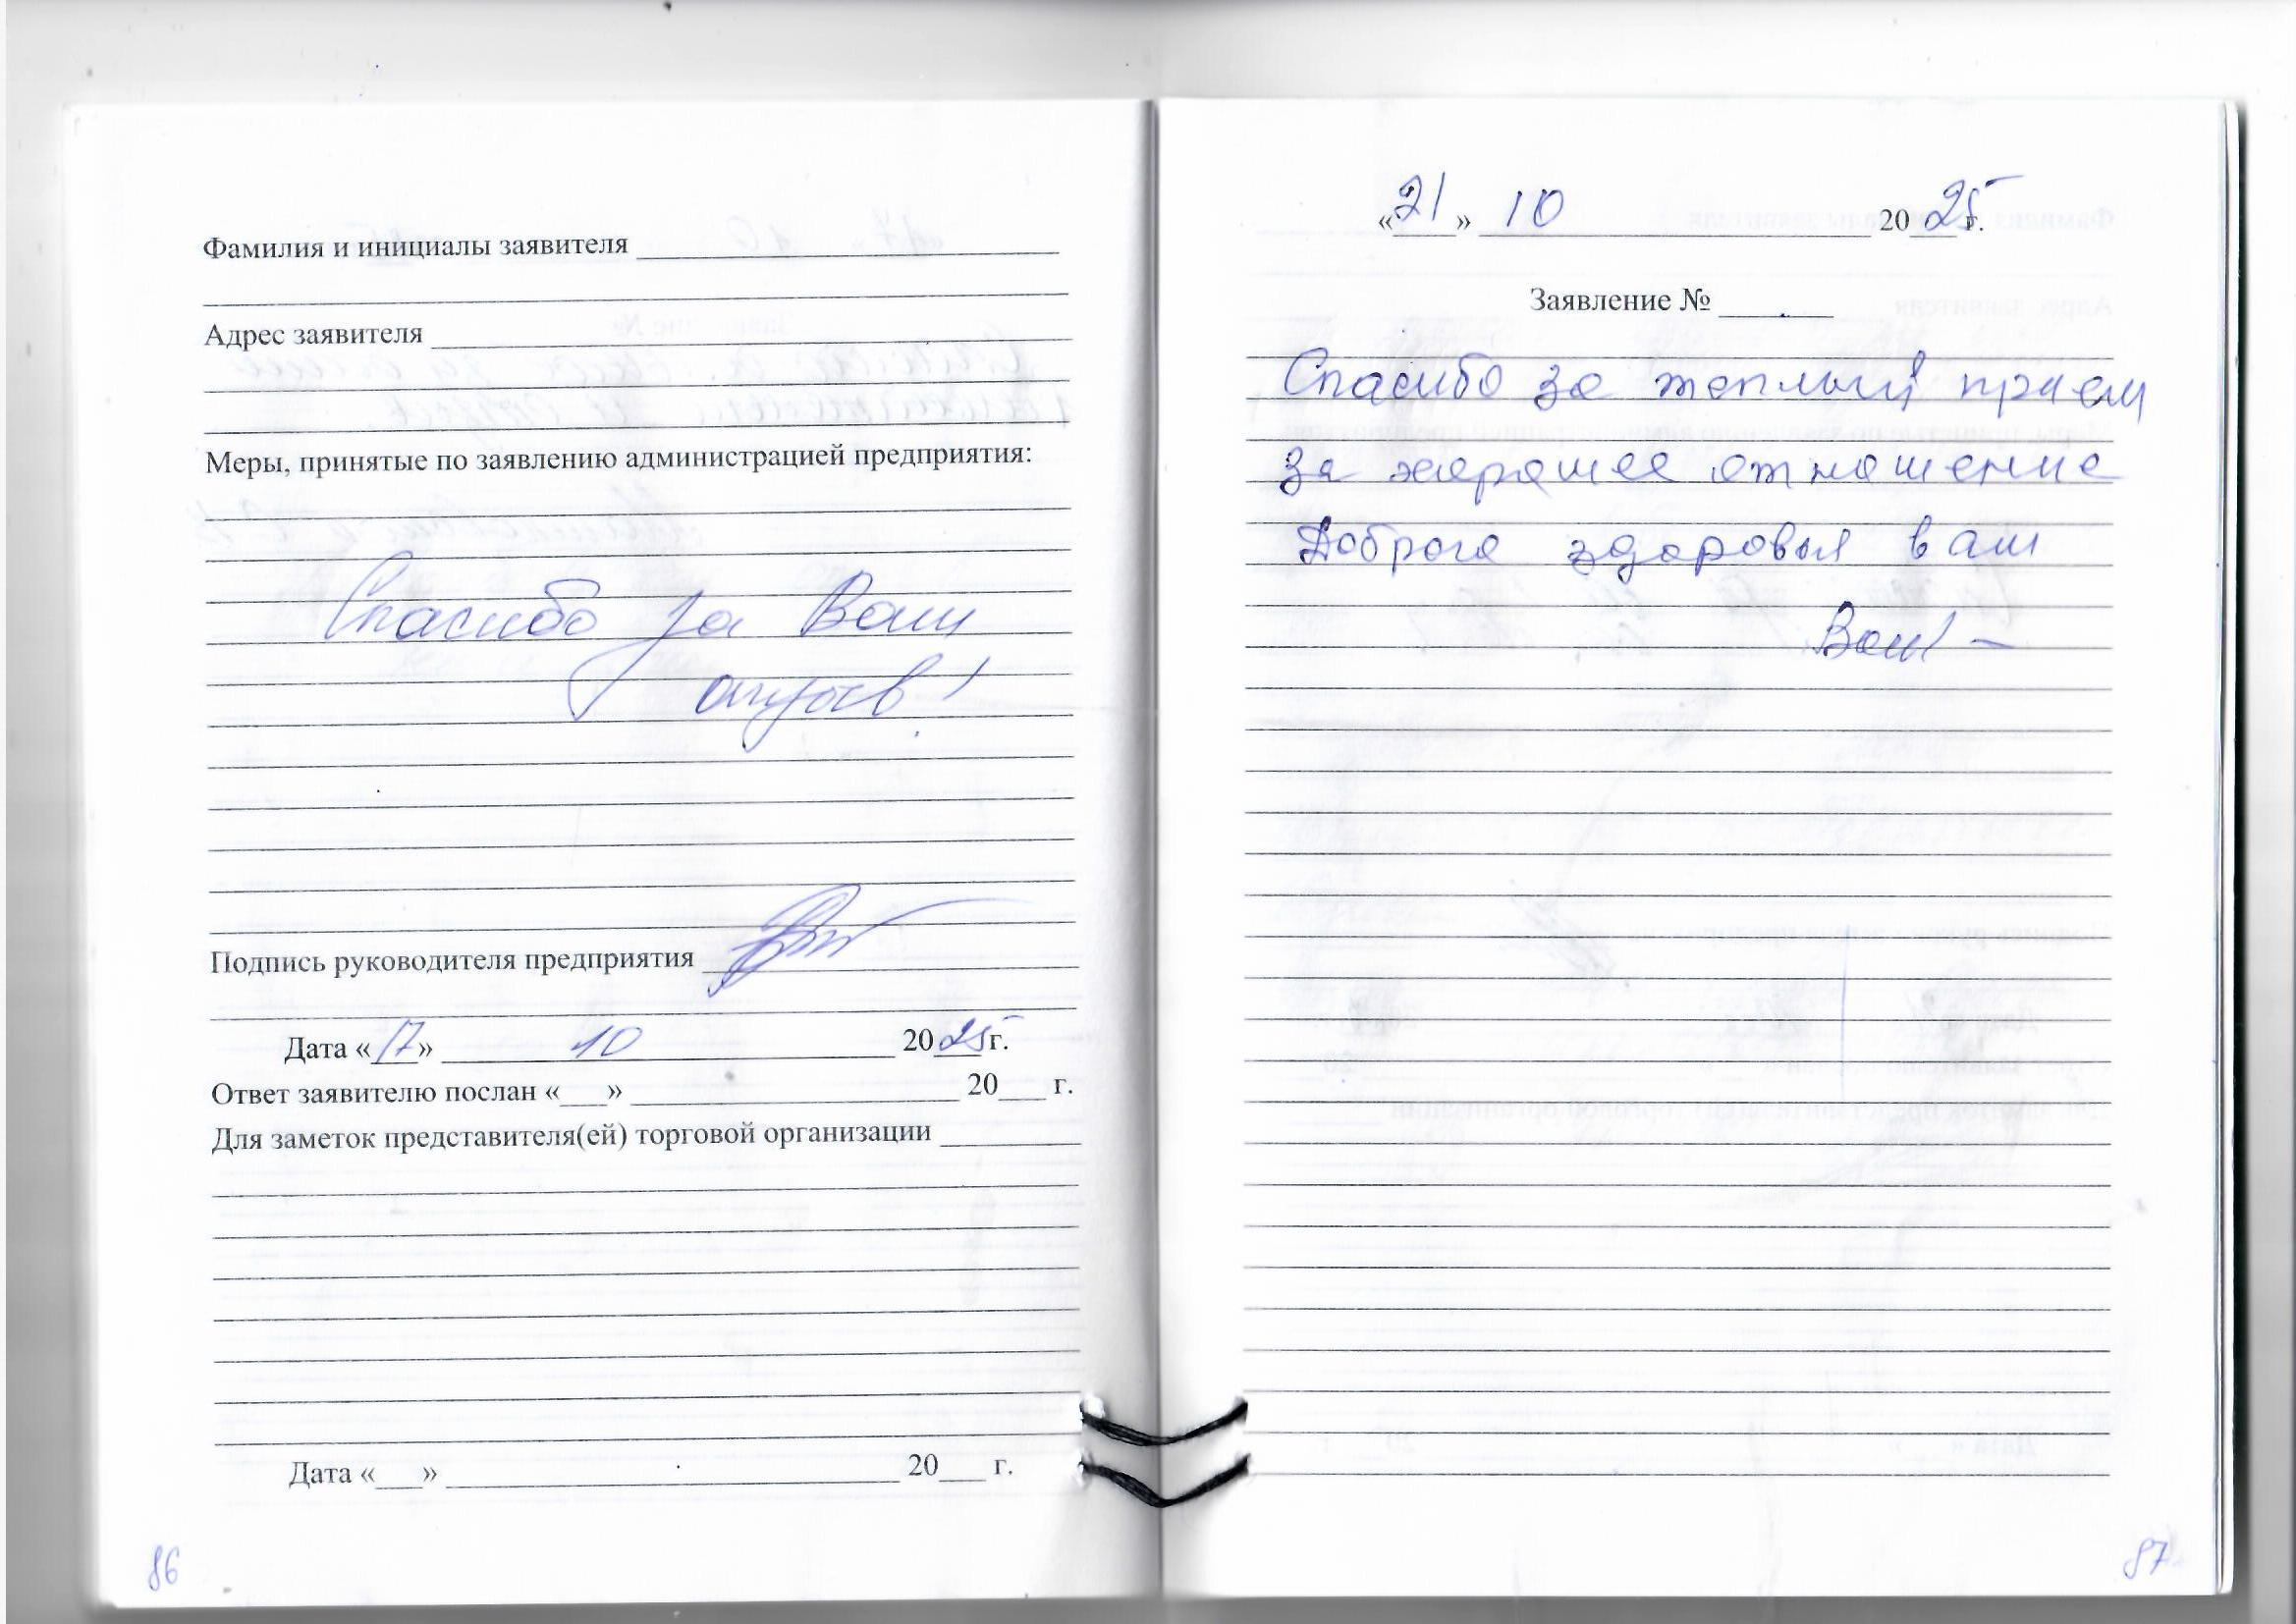 Фамилия и инициалы заявителя
Адрес заявителя
Меры, принятые по заявлению администрацией предприятия:
Спасибо за Ваш
отзыв!
Подпись руководителя предприятия
Дата «17» 10 2025 г.
Ответ заявителю послан «___» 20___ г.
Для заметок представителя(ей) торговой организации
Дата «___» 20___ г.
86
«21» 10 2025 г.
Заявление №
Спасибо за теплый прием
за хорошее отношение
Доброго здоровья вам
87